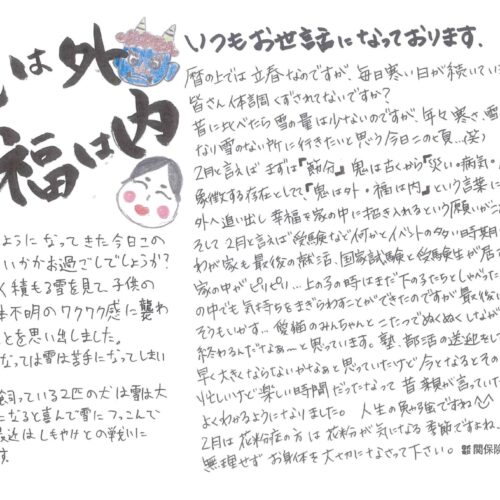 は外
福は内
ようになってきた今日この
いかがお過ごしでしょうか?
く積もる雪を見て、子供の
体不明のワクワク感に襲わ
ことを思い出しました。
なっては雪は苦手になってしまい
飼っている2匹の犬は雪は大
になると喜んで雪につっこんで
最近はしもやけとの戦いに
す。
いつもお世話になっております。
暦の上では立春なのですが、毎日寒い日が続いてい
皆さん体調くずされてないですか?
昔に比べたら雪の量は少ないのですが、年々寒さ、雪
なり雪のない所に行きたいと思う今日この頃…(笑)
2月と言えば まずは『節分』鬼は古くから『災い・病気・
象徴する存在として、『鬼は外・福は内』という言葉に
外へ追い出し 幸福を家の中に招き入れるという願いがこ
そして 2月と言えば受験など何かとイベントの多い時期
わが家も最後の就活、国家試験と受験生が居
家の中がピリピリ…上の子の時はまだ下の子たちとしゃべった
の中でも気持ちをまぎらわすことができたのですが最後い
そうもいかず… 愛猫のみんちゃんとこたつでぬくぬくしなが
終わるんだなぁ…と思っています。塾、部活の送迎をし
早く大きくならないかなぁと思っていたけど今となるとその
忙しいけど楽しい時間だったなって 昔 親が言っていた
よくわかるようになりました。 人生の勉強ですね
2月は 花粉症の方は 花粉が気になる季節ですよね
無理せず お身体を大切になさって下さい。 関保険